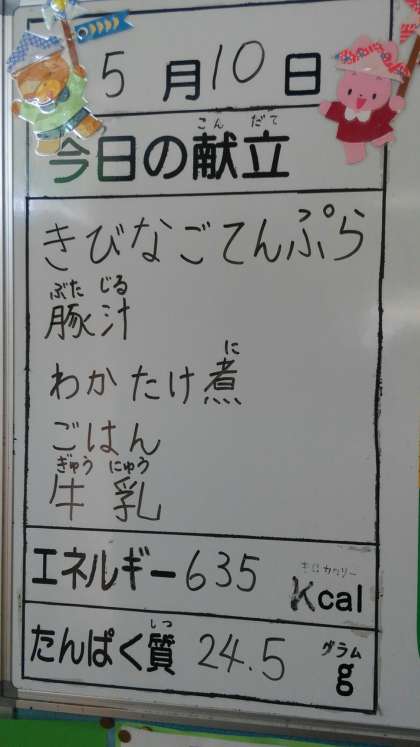 5月10日
こんだて
今日の献立
きびなごてんぷら
ぶたじる
豚汁
に
わかたけ煮
ごはん
ぎゅうにゅう
牛乳
キロカロリー
エネルギー635 Kcal
しつ グラム
たんぱく質 24.5 g